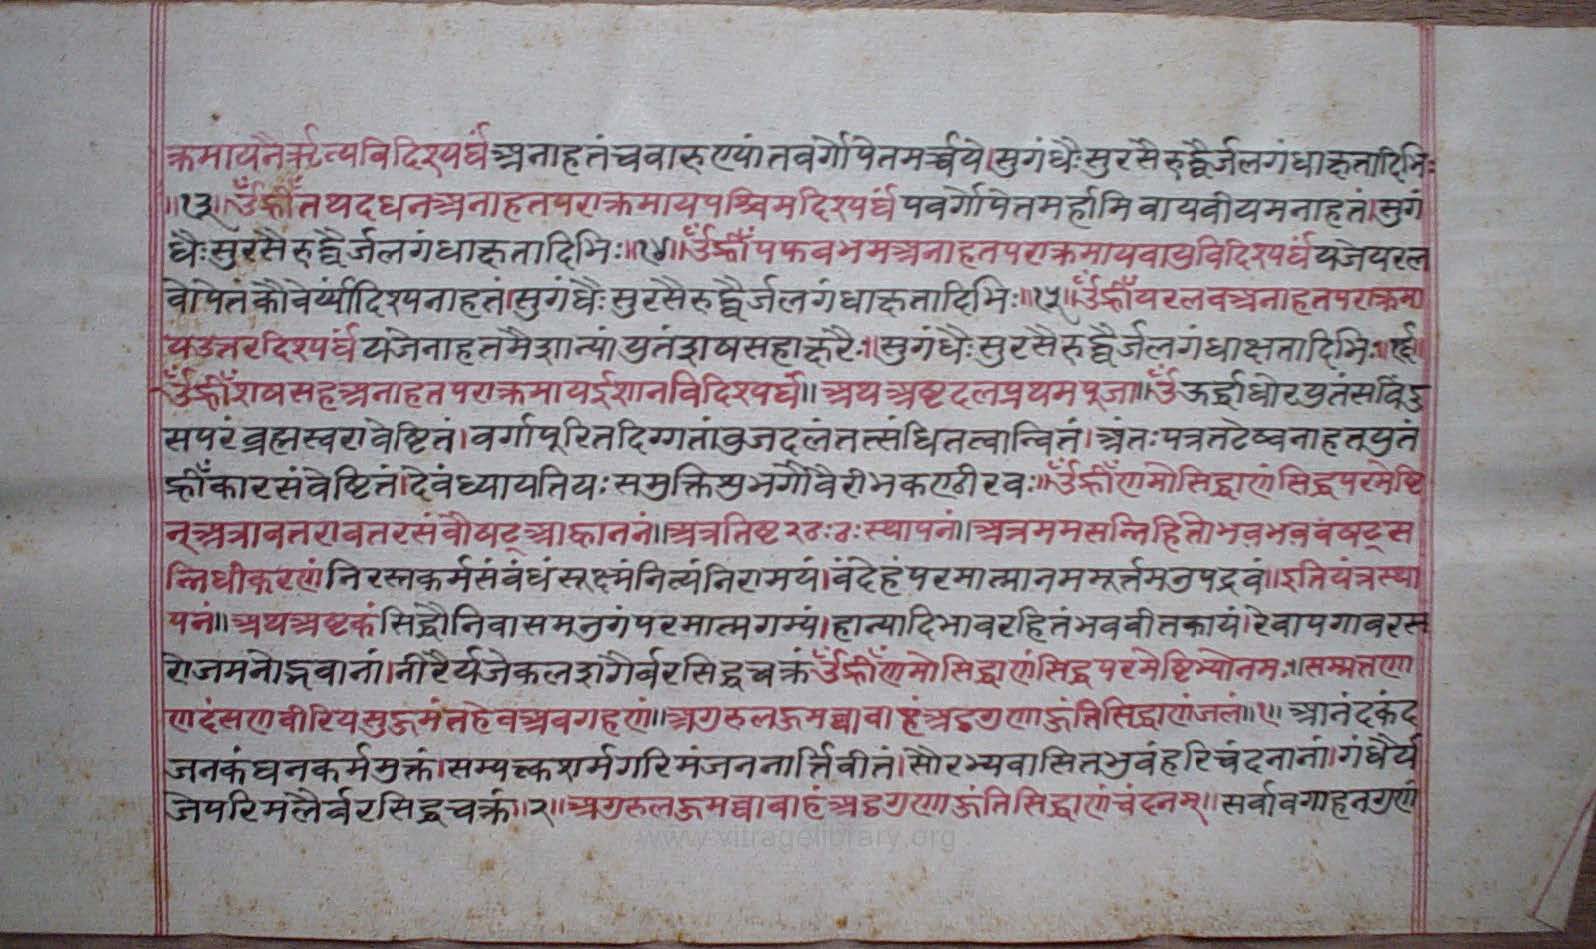 क्रमायनैर्ऋत्यविदिश्यर्घं अनाहतंचवारुण्यांतवर्गोपेतमर्च्चये।सुगंधैःसुरसैरुद्घैर्जलगंधाक्षतादिभिः
॥१३॥ॐह्रीँतथदधनअनाहतपराक्रमायपश्चिमदिश्यर्घंपवर्गोपेतमर्हामिवायवीयमनाहतं।सुगं
धैःसुरसैरुद्घैर्जलगंधाक्षतादिभिः॥१४॥ॐह्रीँपफबभमअनाहतपराक्रमायवायुविदिश्यर्घंयजेयरल
वोपेतंकौवेर्य्यांदिश्यनाहतं।सुगंधैःसुरसैरुद्घैर्जलगंधाक्षतादिभिः॥१५॥ॐह्रीँयरलवअनाहतपराक्रमा
यउत्तरदिश्यर्घंयजेनाहतमैशान्यांयुतंशषसहाक्षरैः।सुगंधैःसुरसैरुद्घैर्जलगंधाक्षतादिभिः॥१६॥
ॐह्रीँशषसहअनाहतपराक्रमायईशानविदिश्यर्घं॥अथअष्टदलप्रथमपूजा॥ॐऊर्द्धाधोरयुतंसविंदु
सपरंब्रह्मस्वरावेष्टितं।वर्गापूरितदिग्गतांवुजदलंतत्संधितत्वान्वितं।अंतःपत्रतटेष्वनाहतयुतं
ह्रीँकारसंवेष्टितं।देवंध्यायतियःसमुक्तिशुभगोवैरीभकण्ठीरवः॥ॐह्रीँणमोसिद्धाणंसिद्धपरमेष्टि
न्अत्रावतरावतरसंवौषट्आह्वाननं॥अत्रतिष्ट२ठःठःस्थापनं॥अत्रममसन्निहितोभवभववंषट्स
न्निधीकरणंनिरस्तकर्मसंवंधंसूक्ष्मंनित्यंनिरामयं।वंदेहंपरमात्मानममूर्त्तमनुपद्रवं॥इतियंत्रस्था
पनं॥अथअष्टकंसिद्धौनिवासमनुगंपरमात्मगम्यं।हान्यादिभावरहितंभववीतकायं।रेवापगावरस
रोजमनोद्भवानां।नीरैर्यजेकलशगैर्वरसिद्धचक्रंॐह्रीँणमोसिद्धाणंसिद्धपरमेष्टिभ्योनमः॥सम्मत्तणा
णदंसणवीरियसुहुमंतहेवअवगहणं॥अगुरुलहुमव्वावाहंअट्ठगुणाहुंतिसिद्धाणंजलं॥१॥आनंदकंद
जनकंघनकर्ममुक्तं।सम्यत्कशर्मगरिमंजननार्त्तिवीतं।सौरभ्यवासितभुवंहरिचंदनानां।गंधैर्य
जेपरिमलैर्वरसिद्धचक्रं॥२॥अगुरुलहुमव्वावाहंअट्ठगुणाहुंतिसिद्धाणंचंदनम्॥सर्वावगाहनगुणं
www.vitragelibrary.org